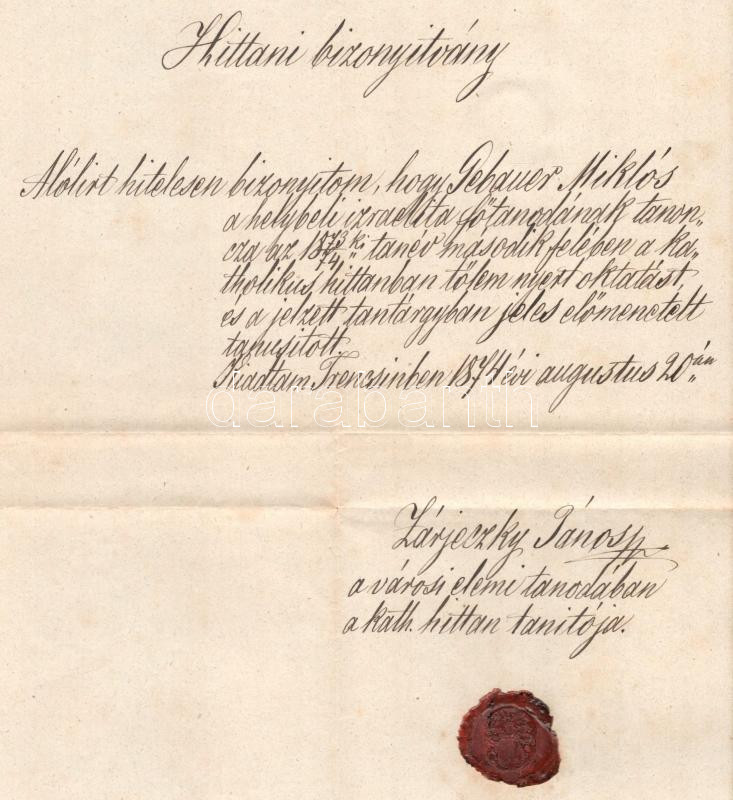 Hittani bizonyitvány
Alólirt hitelesen bizonyitom, hogy Gebauer Miklós
a helybeli izraelita főtanodának tanon„
cza az 1873/74„ki tanév második felében a ka„
tholikus hittanban tőlem nyert oktatást,
és a jelzett tantárgyban jeles előmenetelt
tanusitott.
Kiadtam Trencsinben 1874 évi augustus 20„án
darabanth
Zárjeczky János
a városi elemi tanodában
a kath. hittan tanitója.